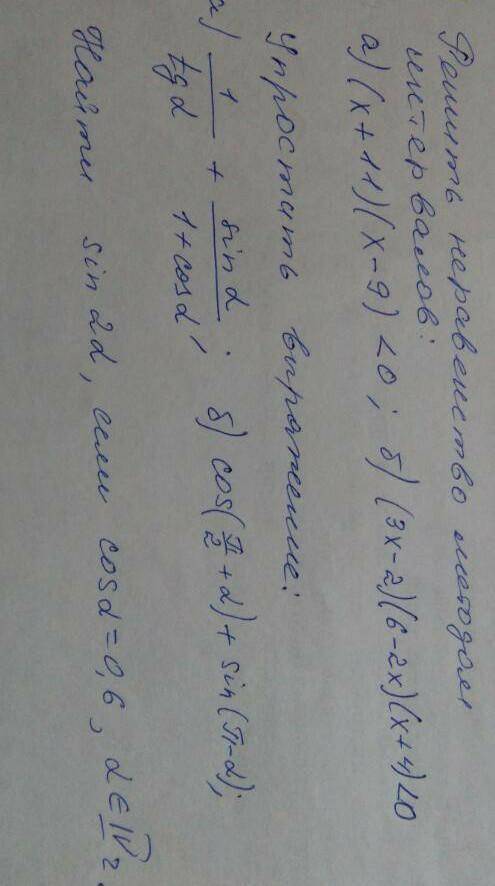 Решить неравенство методом
интервалов:
а) (x+11)(x-9)<0; б) (3x-2)(6-2x)(x+4)<0
Упростить выражение:
а) 1/tgα + sinα/1+cosα; б) cos(π/2+α)+sin(π-α);
Найти sin2α, если cosα=0,6, α∈IV г.